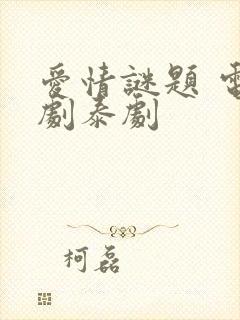 愛情謎題 電
劇泰劇
柯磊